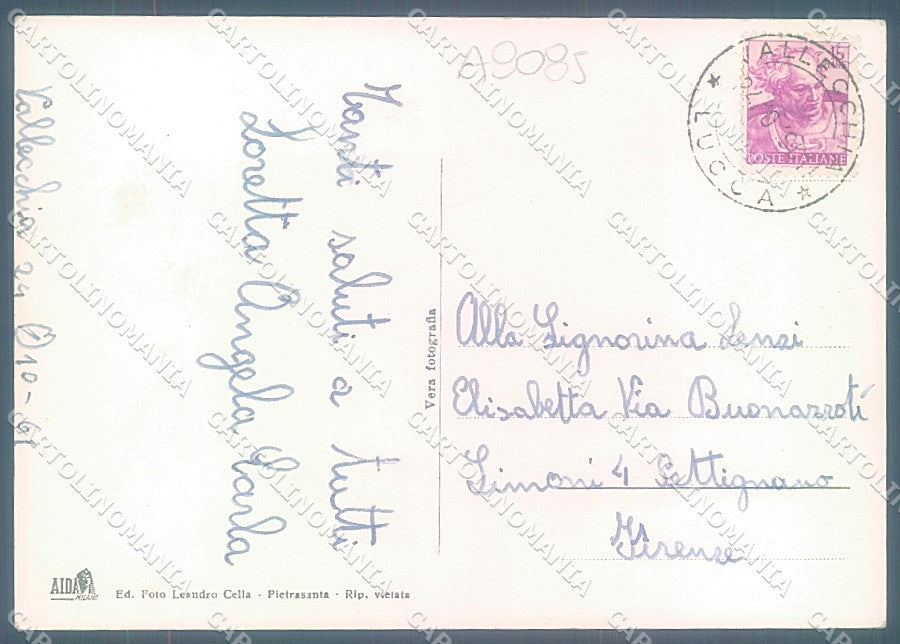 A9085
VALLECCHIA
LUCCA
15
POSTE ITALIANE
Vallecchia 24 10-61
Tanti saluti a tutti
Loretta Angela Carla
Vera fotografia
Alla Signorina Lenzi
Elisabetta Via Buonarroti
Simoni 4 Settignano
Firenze
AIDA
MILANO
Ed. Foto Leandro Cella - Pietrasanta - Rip. vietata
CARTOLINOMANIA